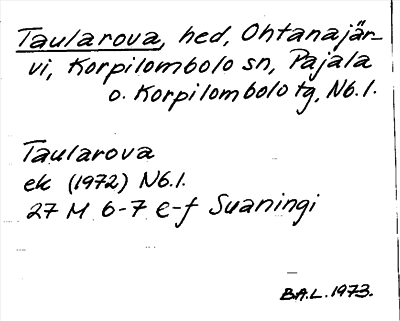 Taularova, hed, Ohtanajär-
vi, Korpilombolo sn, Pajala
o. Korpilombolo tg, Nb.l.
Taularova
ek (1972) Nb.l.
27 M 6-7 e-f Suaningi
B.A.L. 1973.